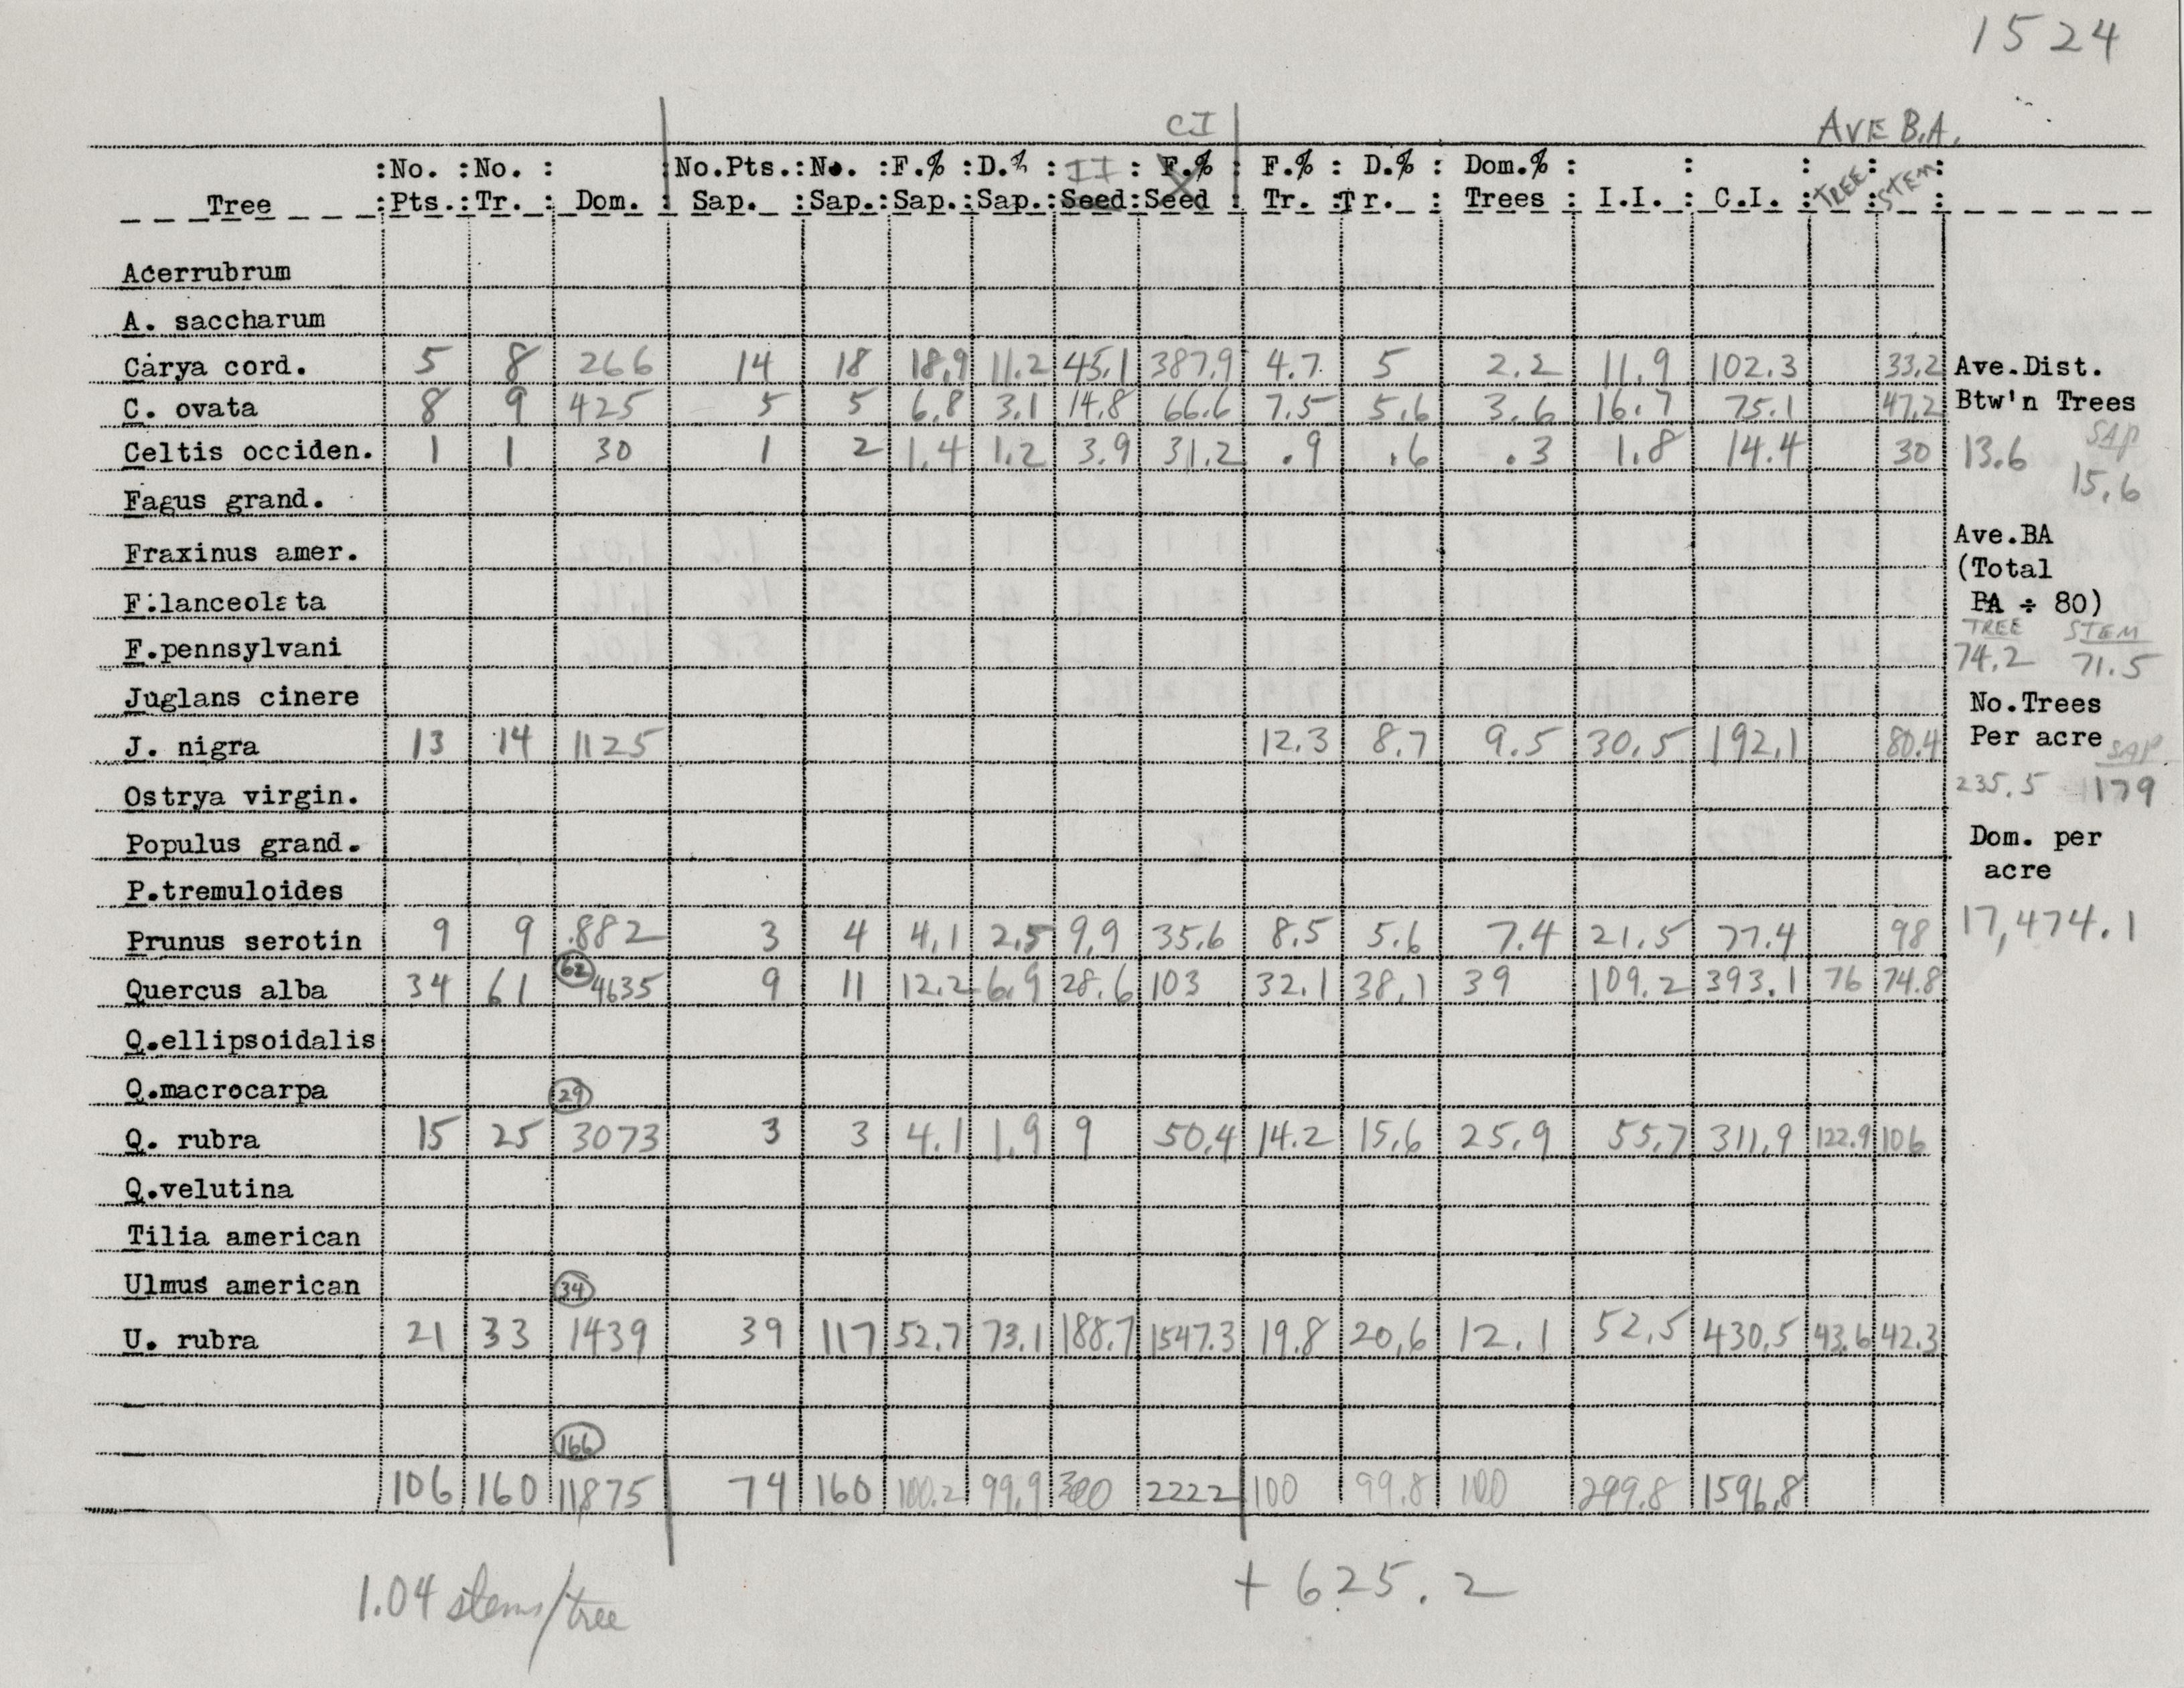 1524
CI AVE B.A.
:No. :No. : :No.Pts.:No. :F.% :D.% : II : F.% : F.% : D.% : Dom.% : : : : :
Tree :Pts.:Tr. : Dom. : Sap. :Sap.:Sap.:Sap.:Seed:Seed : Tr. :Tr. : Trees : I.I. : C.I. : TREE : STEM :
Acerrubrum
A. saccharum
Carya cord. 5 8 266 14 18 18.9 11.2 45.1 387.9 4.7 5 2.2 11.9 102.3 33.2 Ave.Dist.
C. ovata 8 9 425 5 5 6.8 3.1 14.8 66.6 7.5 5.6 3.6 16.7 75.1 47.2 Btw'n Trees
SAP
Celtis occiden. 1 1 30 1 2 1.4 1.2 3.9 31.2 .9 .6 .3 1.8 14.4 30 13.6
15.6
Fagus grand.
Ave.BA
Fraxinus amer.
(Total
F.lanceolata BA ÷ 80)
TREE STEM
F.pennsylvani 74.2 71.5
Juglans cinere No.Trees
J. nigra 13 14 1125 12.3 8.7 9.5 30.5 192.1 80.4 Per acre SAP
Ostrya virgin. 235.5 179
Populus grand. Dom. per
acre
P.tremuloides
Prunus serotin 9 9 882 3 4 4.1 2.5 9.9 35.6 8.5 5.6 7.4 21.5 77.4 98 17,474.1
62
Quercus alba 34 61 4635 9 11 12.2 6.9 28.6 103 32.1 38.1 39 109.2 393.1 76 74.8
Q.ellipsoidalis
Q.macrocarpa 29
Q. rubra 15 25 3073 3 3 4.1 1.9 9 50.4 14.2 15.6 25.9 55.7 311.9 122.9 106
Q.velutina
Tilia american
Ulmus american 34
U. rubra 21 33 1439 39 117 52.7 73.1 188.7 1547.3 19.8 20.6 12.1 52.5 430.5 43.6 42.3
166
106 160 11875 74 160 100.2 99.9 300 2222 100 99.8 100 299.8 1596.8
+ 625.2
1.04 stems/tree